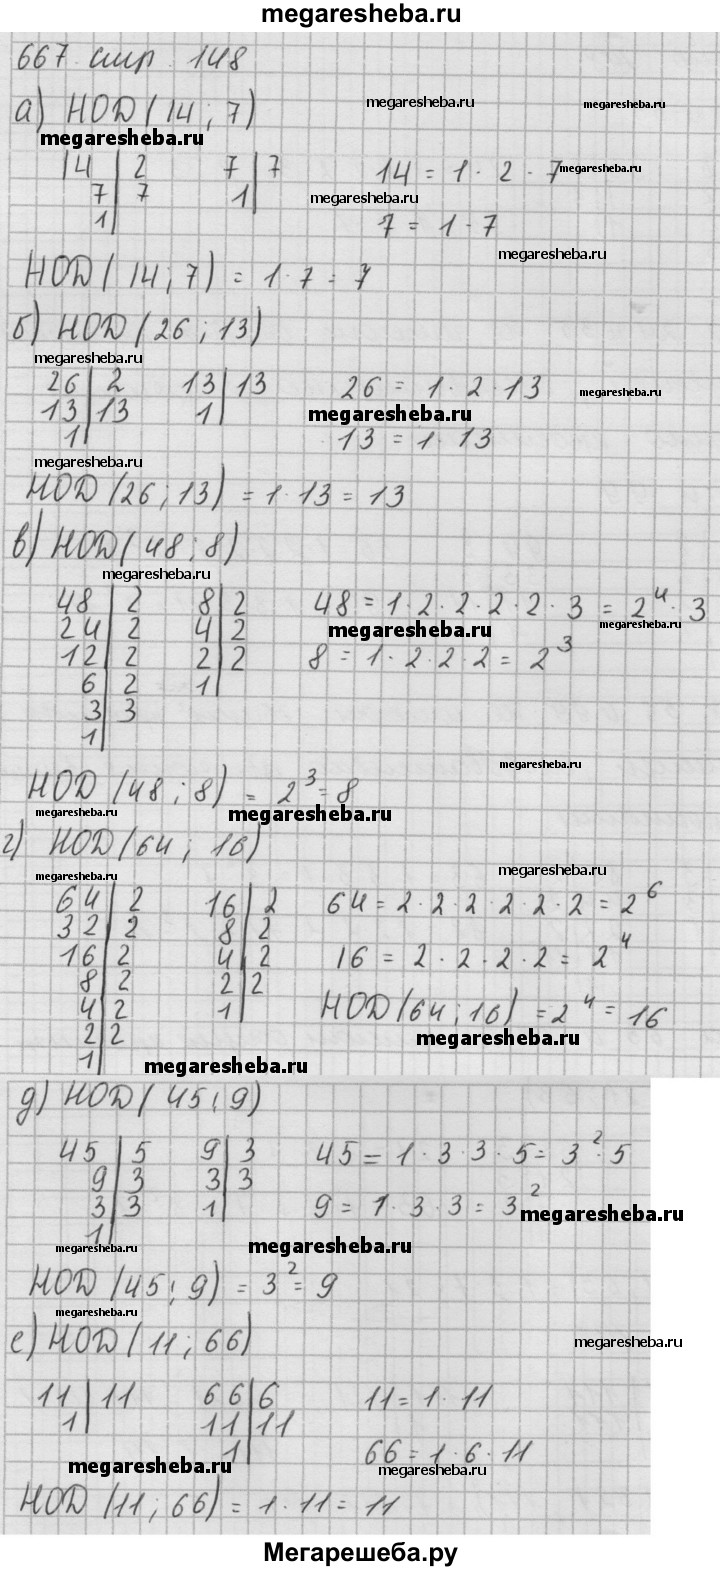 megaresheba.ru
667 стр. 148
а) НОД (14 ; 7)
megaresheba.ru megaresheba.ru
megaresheba.ru
14 | 2 7 | 7 14 = 1 · 2 · 7 megaresheba.ru
7 | 7 1 | megaresheba.ru
1 | 7 = 1 · 7
megaresheba.ru
НОД (14 ; 7) = 1 · 7 = 7
б) НОД (26 ; 13)
megaresheba.ru
26 | 2 13 | 13 26 = 1 · 2 · 13 megaresheba.ru
13 | 13 1 | megaresheba.ru
1 | 13 = 1 · 13
megaresheba.ru
НОД (26 ; 13) = 1 · 13 = 13
в) НОД (48 ; 8)
megaresheba.ru
48 | 2 8 | 2 48 = 1 · 2 · 2 · 2 · 2 · 3 = 2⁴ · 3
24 | 2 4 | 2 megaresheba.ru megaresheba.ru
12 | 2 2 | 2 8 = 1 · 2 · 2 · 2 = 2³
6 | 2 1 |
3 | 3
1 |
megaresheba.ru
НОД (48 ; 8) = 2³ = 8
megaresheba.ru megaresheba.ru
г) НОД (64 ; 16)
megaresheba.ru megaresheba.ru
64 | 2 16 | 2 64 = 2 · 2 · 2 · 2 · 2 · 2 = 2⁶
32 | 2 8 | 2
16 | 2 4 | 2 16 = 2 · 2 · 2 · 2 = 2⁴
8 | 2 2 | 2
4 | 2 1 | НОД (64 ; 16) = 2⁴ = 16
2 | 2 megaresheba.ru
1 | megaresheba.ru
д) НОД (45 ; 9)
45 | 5 9 | 3 45 = 1 · 3 · 3 · 5 = 3² · 5
9 | 3 3 | 3
3 | 3 1 | 9 = 1 · 3 · 3 = 3² megaresheba.ru
1 |
megaresheba.ru megaresheba.ru
НОД (45 ; 9) = 3² = 9
megaresheba.ru
е) НОД (11 ; 66)
megaresheba.ru
11 | 11 66 | 6 11 = 1 · 11
1 | 11 | 11
1 | 66 = 1 · 6 · 11
megaresheba.ru megaresheba.ru
НОД (11 ; 66) = 1 · 11 = 11
Мегарешеба.ру